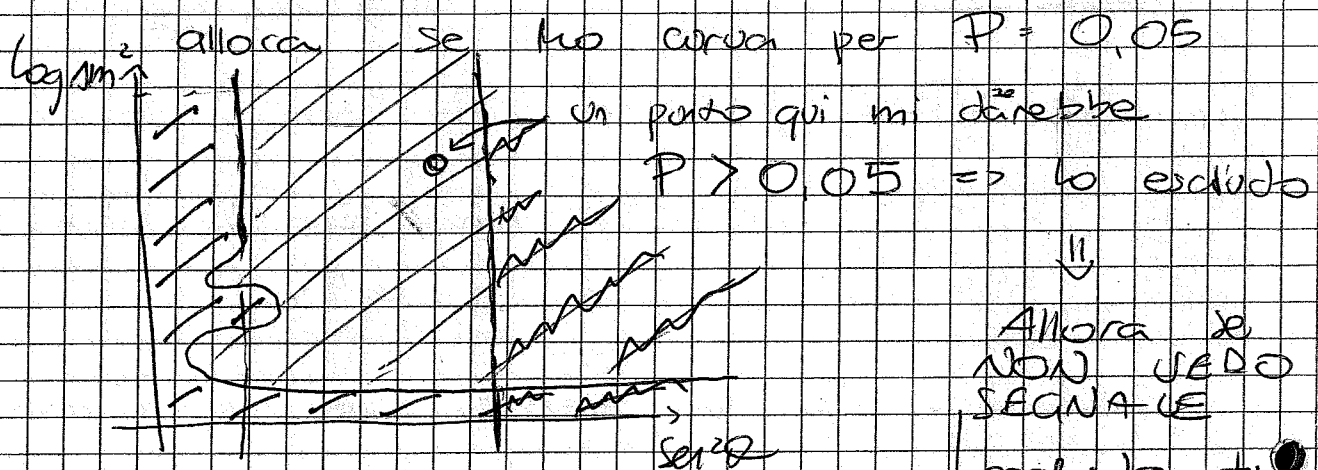 allora se ho curva per P = 0,05
log sm²
un punto qui mi darebbe
P > 0,05 => lo escludo
⇓
Allora se
NON VEDO
SEGNALE
sen²2